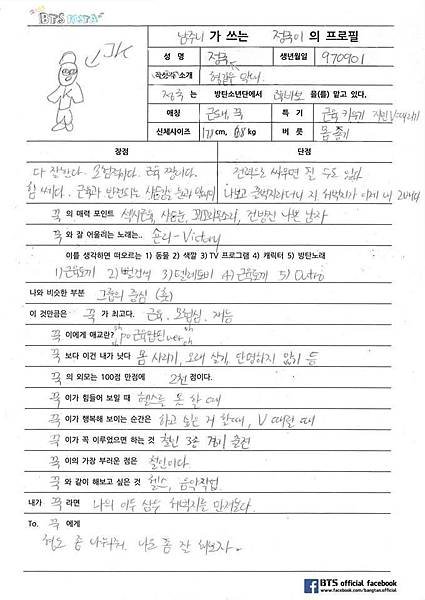 BTS FESTA
남주니 가 쓰는 정국이 의 프로필
JK
성 명 정국 생년월일 970901
소개 막내
정국 는 방탄소년단에서 을(를) 맡고 있다.
애칭 근돼, 꾹 특 기 근육 키우기
신체사이즈 178 cm, 68 kg 버 릇 몸 풀기
장점 단점
다 잘한다. 모험적이다. 근육 쩐다. 전력으로 싸우면 질 수도 있다
힘 쎄다. 근육과 반전되는 사슴같은 눈과
꾹 의 매력 포인트 섹시근육, 사슴눈, 나쁜 남자
꾹 와 잘 어울리는 노래는.. 승리 - Victory
이를 생각하면 떠오르는 1) 동물 2) 색깔 3) TV 프로그램 4) 캐릭터 5) 방탄노래
1) 근육토끼 2) 빨검색 3) 텔레토비 4) 근육토끼 5) Outro
나와 비슷한 부분 그룹의 중심 (춤)
이 것만큼은 꾹 가 최고다. 근육, 모험심, 재능
꾹 이에게 애교란? 근육
꾹 보다 이건 내가 낫다 몸 사리기, 오래 살기, 단명하지 않기 등
꾹 의 외모는 100점 만점에 2천 점이다.
꾹 이가 힘들어 보일 때 헬스를 못 할 때
꾹 이가 행복해 보이는 순간은 하고 싶은 거 할 때, V 때릴 때
꾹 이가 꼭 이루었으면 하는 것 철인 3종 경기 출전
꾹 이의 가장 부러운 점은 철인이다
꾹 와 같이 해보고 싶은 것 헬스, 음악작업
내가 꾹 라면 나의 이두 삼두 허벅지를 만져본다.
To. 꾹 에게
힘도 좀 나눠줘. 나도 좀 잘 해보자~
BTS official facebook
www.facebook.com/bangtan.official